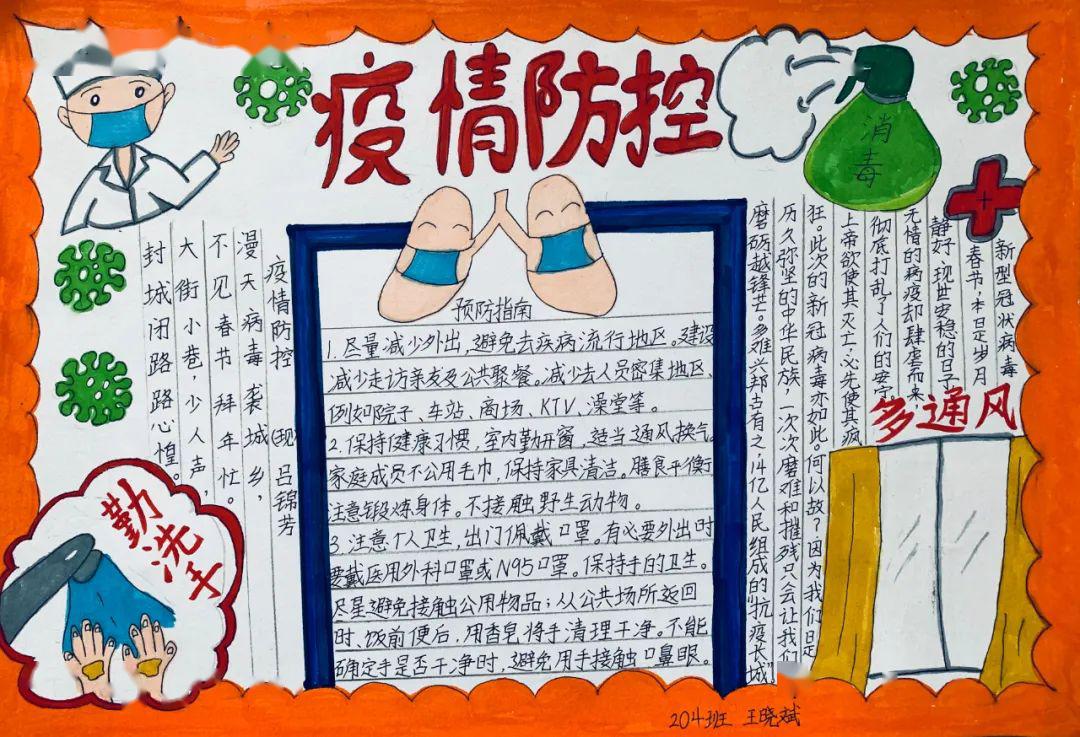 疫情防控
消毒
疫情防控 (现) 吕锦芳
漫天病毒袭城乡，
不见春节拜年忙。
大街小巷，少人声，
封城闭路路心惶。
勤洗手
预防指南
1.尽量减少外出，避免去疾病流行地区。建设
减少走访亲友及公共聚餐。减少去人员密集地区、
例如院子、车站、商场、KTV、澡堂等。
2.保持健康习惯，室内勤开窗，适当通风换气。
家庭成员不公用毛巾，保持家具清洁。膳食平衡，
注意锻炼身体。不接触野生动物。
3.注意个人卫生，出门佩戴口罩。有必要外出时
要戴医用外科口罩或N95口罩。保持手的卫生。
尽量避免接触公用物品；从公共场所返回
时、饭前便后，用香皂将手清理干净。不能
确定手是否干净时，避免用手接触口鼻眼。
新型冠状病毒
春节，本日是岁月
静好，现世安稳的日子
无情的病疫却肆虐而来
彻底打乱了人们的安宁。
上帝欲使其灭亡，必先使其疯
狂。此次的新冠病毒亦如此。何以故？因为我们是
历久弥坚的中华民族，一次次磨难和摧残只会让我们
磨砺越锋芒。多难兴邦古有之，14亿人民组成的“抗疫长城”
多通风
204班 王晓斌